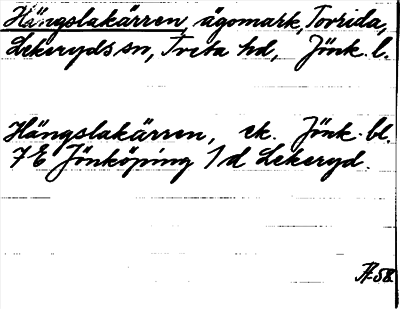 Hängslakärren, ägomark, Torrida,
Lekeryds sn, Tveta hd, Jönk. l.
Hängslakärren, ek. Jönk. bl.
7E Jönköping 1d Lekeryd.
58